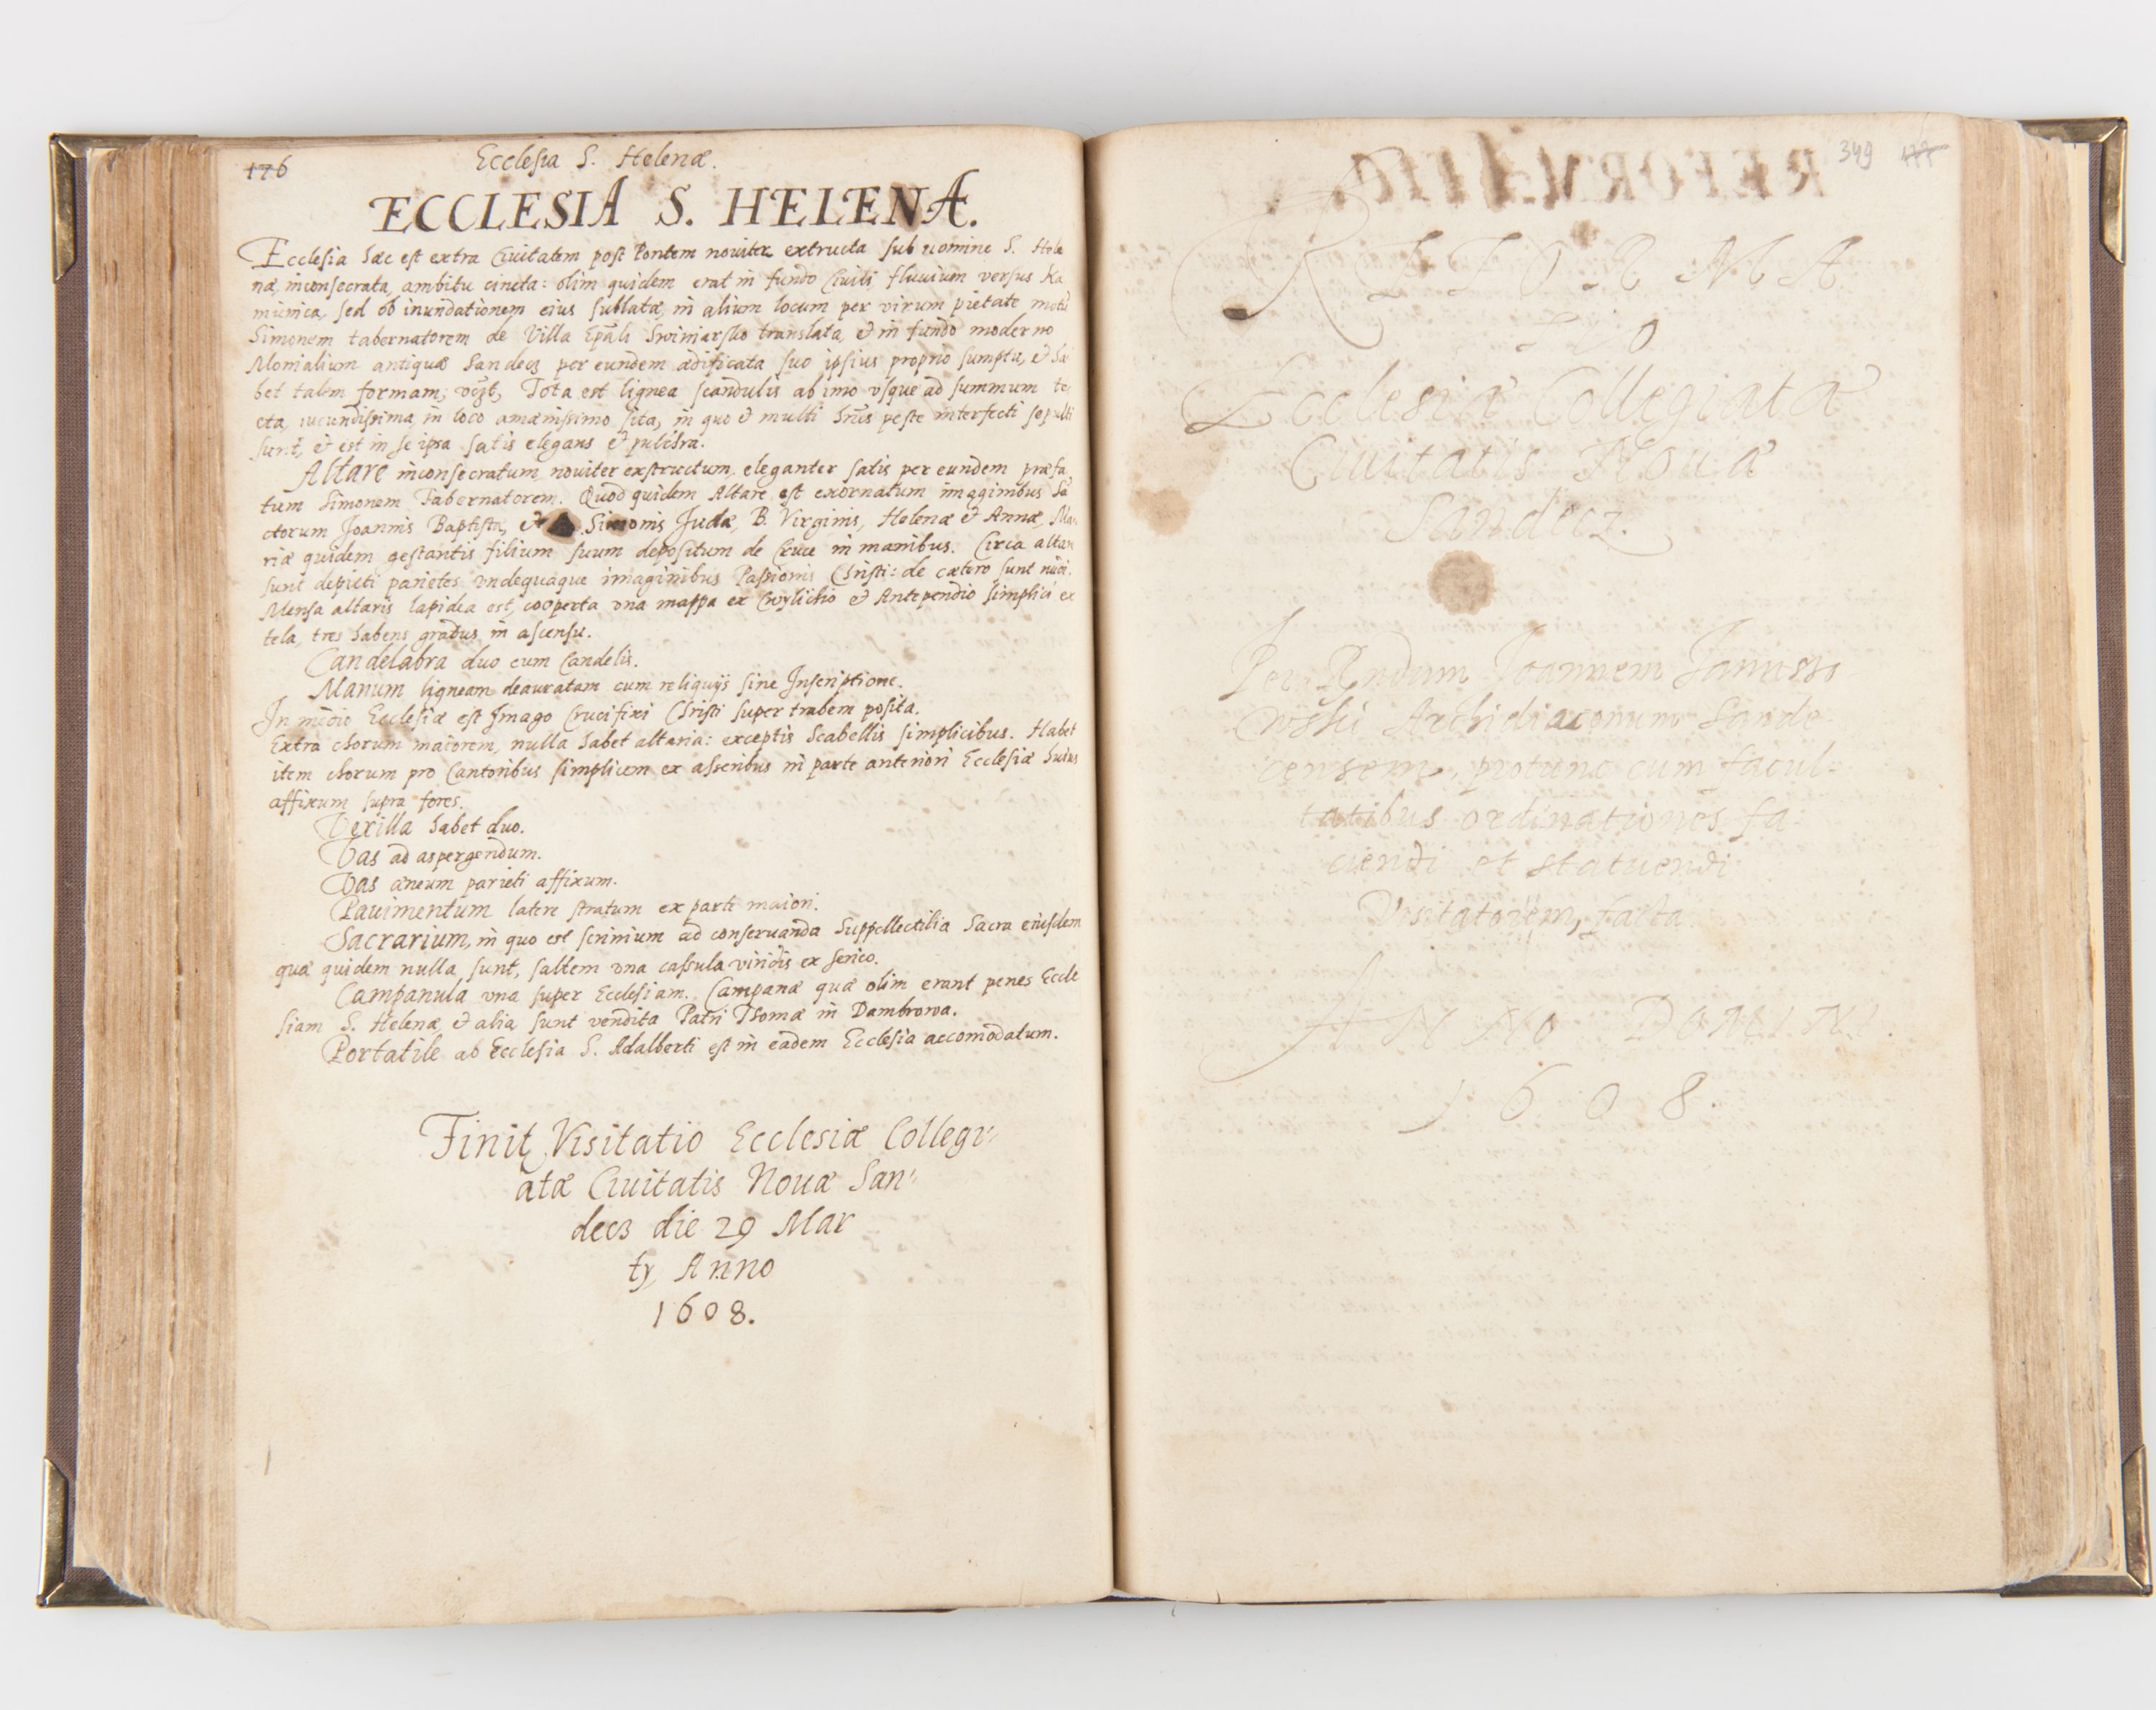 176
Ecclesia S. Helenæ.
ECCLESIA S. HELENÆ.
Ecclesia hæc est extra Ciuitatem post Pontem nouiter extructa sub nomine S. Hele
næ, inconsecrata, ambitu cincta: olim quidem erat in fundo Ciuili fluuium versus Ka
mienica, sed ob inundationem eius sublata, in alium locum per virum pietate motũ
Simonem tabernatorem de Villa Ep̃ali Swiniarsko translata, et in fundo moderno
Monialium antiquæ Sandecz per eundem ædificata suo ipsius proprio sumptu, et ha
bet talem formam; Tota est lignea scandulis ab imo vsque ad summum te
cta, iucundissima, in loco amænissimo sita, in quo et multi hoĩes peste interfecti sepulti
sunt, et est in se ipsa satis elegans et pulchra.
Altare inconsecratum nouiter exstructum eleganter satis per eundem præfa
tum Simonem Tabernatorem. Quod quidem Altare est exornatum imaginibus Sã
ctorum Joannis Baptistæ, et Simonis Judæ, B. Virginis, Helenæ et Annæ, Ma
riæ quidem gestantis filium suum depositum de Cruce in manibus. Circa altare
sunt depicti parietes vndequaque imaginibus Passionis Christi: de cætero sunt nudi.
Mensa altaris lapidea est, cooperta vna mappa ex Cwylicho et Antependio simplici ex
tela, tres habens gradus in ascensu.
Candelabra duo cum Candelis.
Manum ligneam deauratam cum reliquijs sine Inscriptione.
In medio Ecclesiæ est Imago Crucifixi Christi super trabem posita.
Extra chorum maiorem, nulla habet altaria: exceptis Scabellis simplicibus. Habet
item chorum pro Cantoribus simplicem ex asseribus in parte anteriori Ecclesiæ huius
affixum supra fores.
Vexilla habet duo.
Vas ad aspergendum.
Vas æneum parieti affixum.
Pauimentum latere stratum ex parte maiori.
Sacrarium, in quo est scrinium ad conseruanda Suppellectilia Sacra eiusdem
quæ quidem nulla sunt, saltem vna cassula viridis ex serico.
Campanula vna super Ecclesiam. Campanæ quæ olim erant penes Eccle
siam S. Helenæ, et alia sunt vendita Patri Thomæ in Dambrowa.
Portatile ab Ecclesia S. Adalberti est in eadem Ecclesia accomodatum.
Finit Visitatio Ecclesiæ Collegi-
atæ Ciuitatis Nouæ San-
decz die 29 Mar
tij Anno
1608.
349 177
REFORMA
TIO
Ecclesiæ Collegiatæ
Ciuitatis Nouæ
Sandecz.
Per Rndum Joannem Januszo
wski Archidiaconum Sande
censem, protunc cum facul-
tatibus ordinationes fa-
ciendi et statuendi
Visitatorem, facta
ANNO DOMINI.
1608.